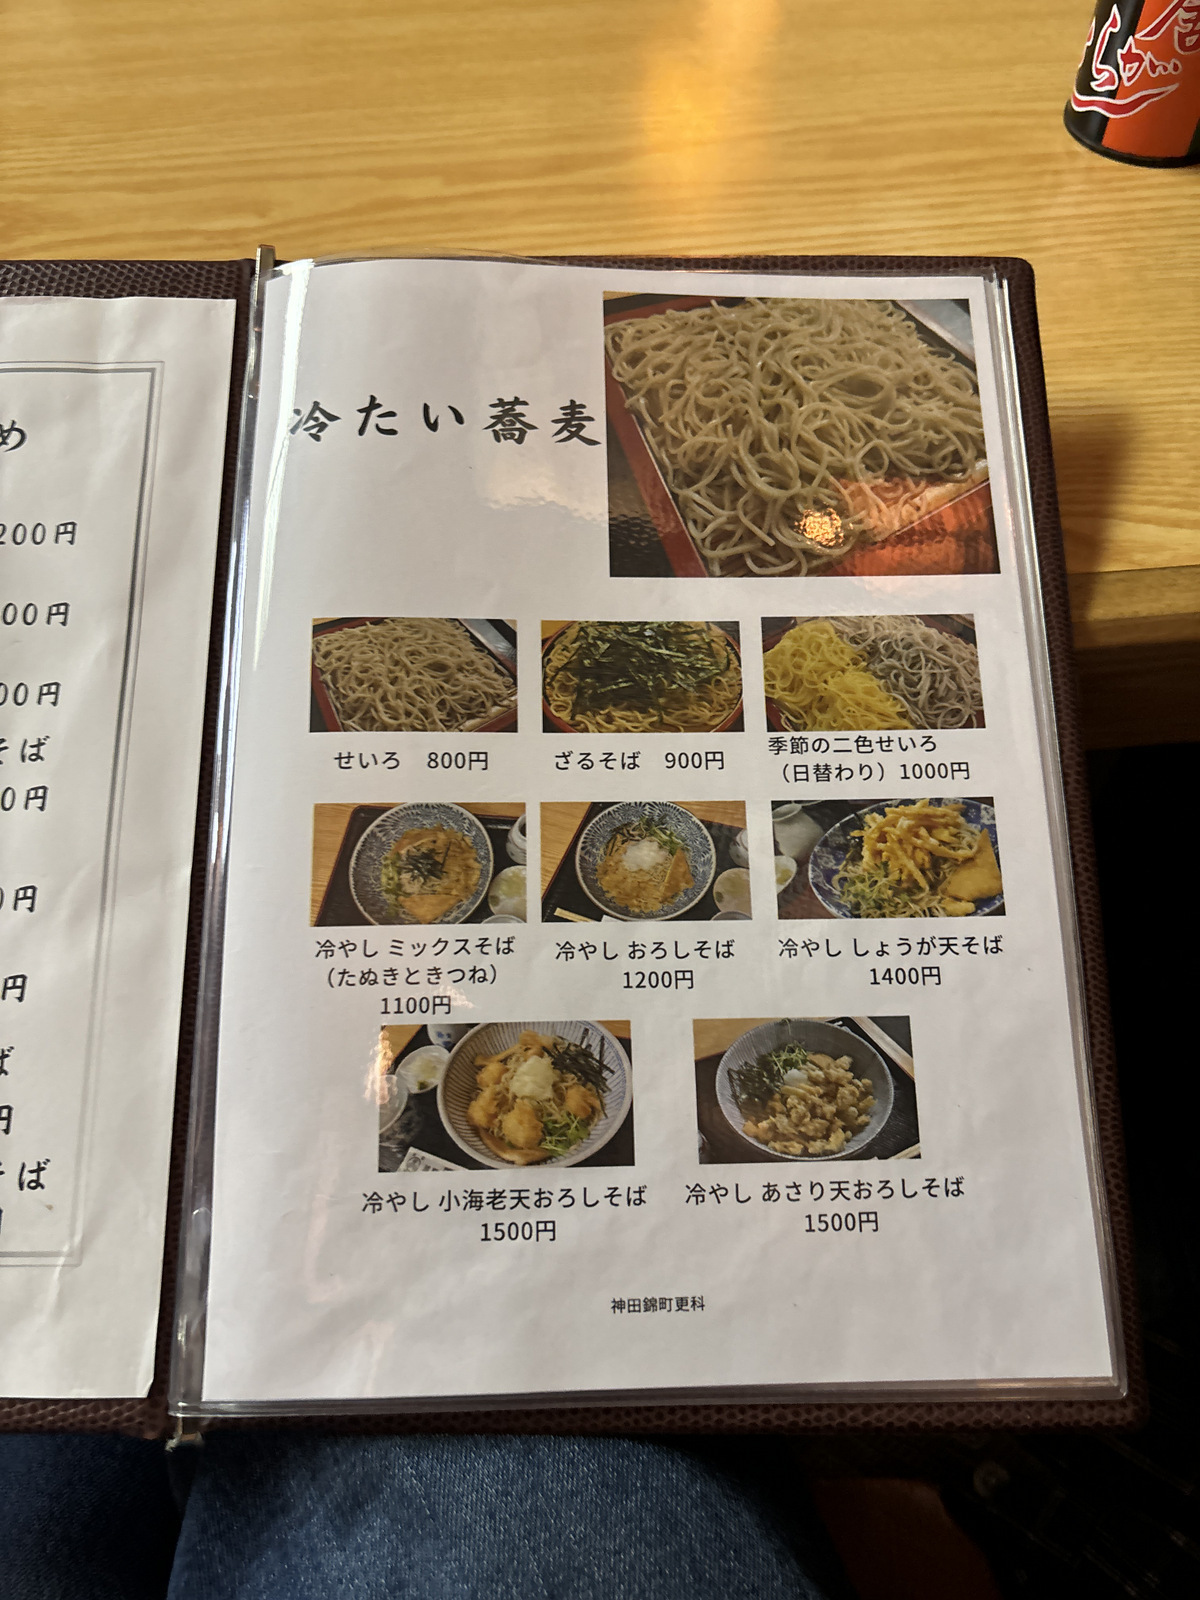 め
200円
00円
00円
そば
0円
円
円
ば
円
そば
冷たい蕎麦
せいろ 800円
ざるそば 900円
季節の二色せいろ
（日替わり）1000円
冷やし ミックスそば
（たぬきときつね）
1100円
冷やし おろしそば
1200円
冷やし しょうが天そば
1400円
冷やし 小海老天おろしそば
1500円
冷やし あさり天おろしそば
1500円
神田錦町更科